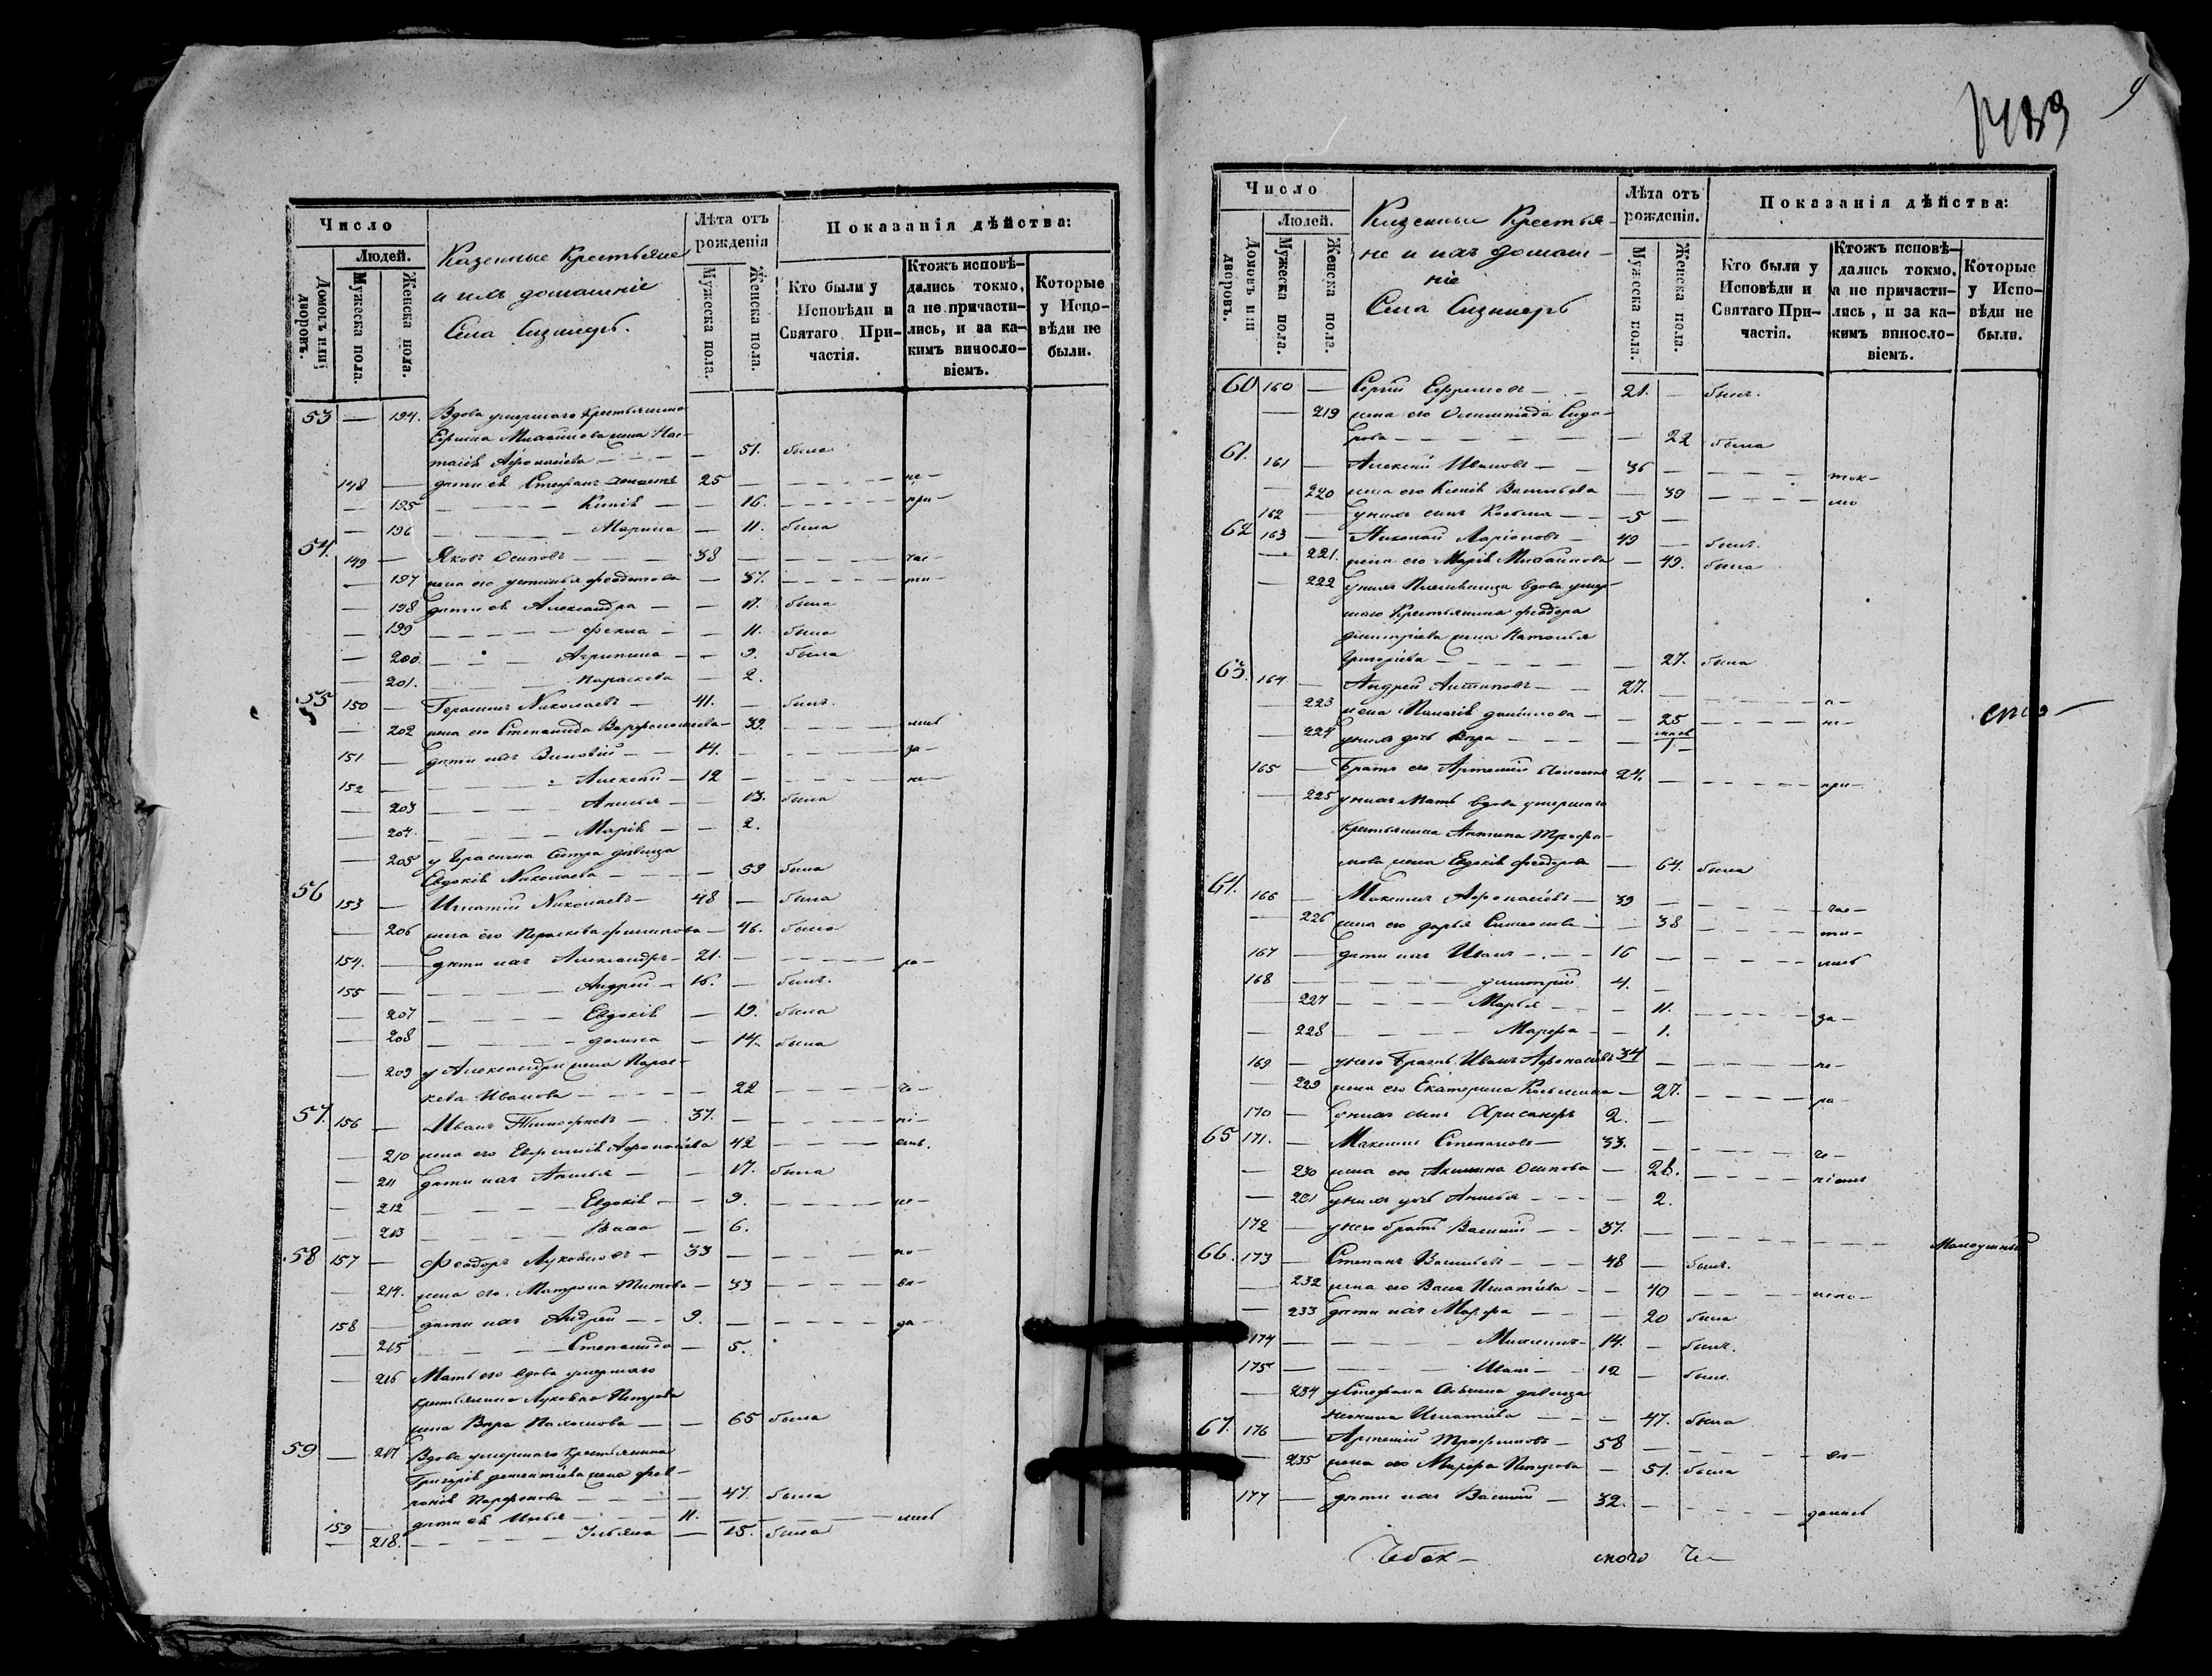 Число
Людей.
Домовъ или дворовъ.
Мужеска пола.
Женска пола.
Казенные Крестьяне
и ихъ домашніе
Села
Лѣта отъ рожденія
Мужеска пола.
Женска пола.
Показанія дѣйства:
Кто были у Исповѣди и Святаго Причастія.
Ктожъ исповѣ-
дались токмо,
а не причасти-
лись, и за ка-
кимъ винosло-
віемъ.
Которые
у Испо-
вѣди не
были.
53 — 194. Вдова умершаго Крестьянина
Михайлова жена Нас-
тасія Афонасіева — 51. была
148 — дѣти ея Стефанъ 25 — не-
— 195 — 16. при-
— 196 Марина — 11. была
54. 149 — Яковъ Осиповъ 38 — час-
— 197 жена его Устинья Феодотова — 37. ти-
— 198 дѣти ея Александра — 17. была
— 199 Фекла — 11. была
— 200. Агрипина — 9. была
— 201. Параскева — 2.
55 150 — Герасимъ Николаевъ 41. — былъ.
— 202 жена его Степанида Варфоломеева — 39. лись
151 — дѣти ихъ Зиновій 14. — за-
152 — Алексѣй 12 — не-
— 203 Анисья — 13. была
— 204. Марія — 2.
— 205 у Герасима Сестра дѣвица
Евдокія Николаева — 59 была
56 153 — Игнатій Николаевъ 48 — былъ
— 206 жена его Параскева Филипова — 46. была
154. — дѣти ихъ Александръ 21. — ра-
155 — Андрей 16. — былъ.
— 207 Евдокія — 19. была
— 208 — 14. была
— 209 у Александра жена Парас-
кева Иванова — 22 че-
57. 156 — Иванъ Тимофеевъ 37. — ні-
— 210 жена его Евфимія Афонасіева 42 емъ.
— 211 дѣти ихъ Анисья — 17. была
— 212 Евдокія — 9. не-
— 213 Васса — 6.
58 157 — Феодоръ Лукояновъ 33 — по-
— 214. жена его Матрона Титова — 33
158 — дѣти ихъ Андрей 9. —
— 215 Степанида — 5.
— 216 Мать его вдова умершаго
крестьянина Лукояна Петрова
жена Вѣра Пахомова — 65 была
59 — 217 Вдова умершаго Крестьянина
Григорія Дементіева жена Фев-
ронія Парфенова — 47. была
159 — дѣти ея Илья 11. — лись
— 218. Ульяна — 15. была
Число
Людей.
Домовъ или дворовъ.
Мужеска пола.
Женска пола.
Казенныи Крестья-
не и ихъ домаш-
ніе
Села
Лѣта отъ рожденія.
Мужеска пола.
Женска пола.
Показанія дѣйства:
Кто были у Исповѣди и Святаго Причастія.
Ктожъ исповѣ-
дались токмо,
а не причасти-
лись, и за ка-
кимъ винosло-
віемъ.
Которые
у Испо-
вѣди не
были.
60 160 — Сергій Ефримовъ 21. — былъ.
— 219 жена его Олимпіада Сидо-
рова — 22 была
61. 161 — Алексѣй Ивановъ 36 — ток-
— 220 жена его Ксенія Васильева — 39 мо
162 — у нихъ сынъ Косьма 5 —
62 163 — Николай Ларіоновъ 49 — былъ.
— 221. жена его Марія Михайлова — 49. была
— 222 у нихъ Племянница вдова умер-
шаго Крестьянина Феодора
Димитріева жена Наталья
Григоріева — 27. была
63. 164 — Андрей Антиповъ 27. — а-
— 223 жена Пелагія Данилова — 25 не-
— 224 у нихъ дочь Вѣра — 1
165 — Братъ его Артемій 24. — при-
— 225 у нихъ Мать вдова умершаго
Крестьянина Антипа Трофи-
мова жена Евдокія Феодорова — 64. была
64. 166 — Максимъ Афонасіевъ 39 — час-
— 226 жена его Дарья Симеонова — 38 ти-
167 — дѣти ихъ Иванъ 16 — лись
168 — Димитрій 4. —
— 227 Марья — 11. за-
— 228 Марфа — 1.
169 — у него братъ Иванъ Афонасіевъ 34 — не-
— 229 жена его Екатерина Косьмина — 27. ра-
170 — у нихъ сынъ Хрисанфъ 2. —
65 171. — Максимъ Степановъ 33. — че-
— 230 жена его Акилина Осипова — 28. ніемъ
— 231 у нихъ дочь Анисья — 2.
172 — у него братъ Василій 37. — Малоумный
66. 173 — Степанъ Васильевъ 48 — былъ.
— 232 жена его Васса Игнатіева — 40 испо-
— 233 дѣти ихъ Марфа — 20 была
174 — 14. — былъ.
175 — Иванъ 12 — былъ.
— 234 у Стефана дѣвица
Игнатіева — 47. была
67. 176 — Артемій Трофимовъ 58 — вѣ-
— 235 жена его Марфа Петрова — 51. была
177 — дѣти ихъ Василій 32. — дались
Чебок- скаго